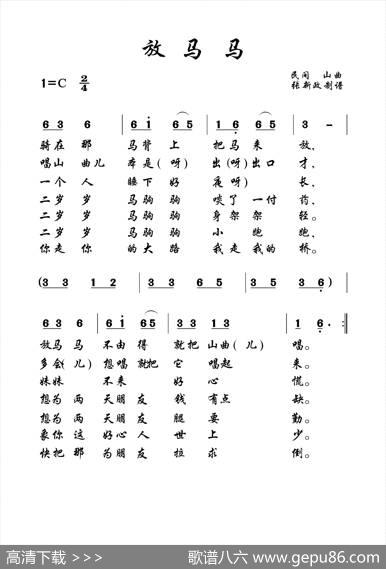 放马马
1=C 2/4
民间 山曲
张新政制谱
6 3 6 | 6 1 6 5 | 6 5 6 5 | 3 - |
骑在那 马背上 把马来 放,
唱山曲儿 本是(呀) 出(呀)出口 才,
一个人 睡下好 夜(呀) 长,
二岁岁 马驹驹 啖了一付 药,
二岁岁 马驹驹 身架架 轻。
二岁岁 马驹驹 小跑 跑,
你走你 的大路 我走我的 桥。
(3 3 1 2 | 3 3 3 5 | 6 5 3 5 | 3 5 3 6)
6 3 6 | 6 1 6 5 | 1 3 1 2 3 | 1 6 . :||
放马马 不由得 就把山曲(儿) 唱。
多会(儿) 想唱就把 它唱起 来。
妹妹 不来 好心 慌。
想为两 天朋友 钱有点 缺。
想为两 天朋友 腿要 勤。
象你这 好心人 世上 少。
快把那 为朋友 拉求 倒。
高清下载 >>>
歌谱八六 www.gepu86.com